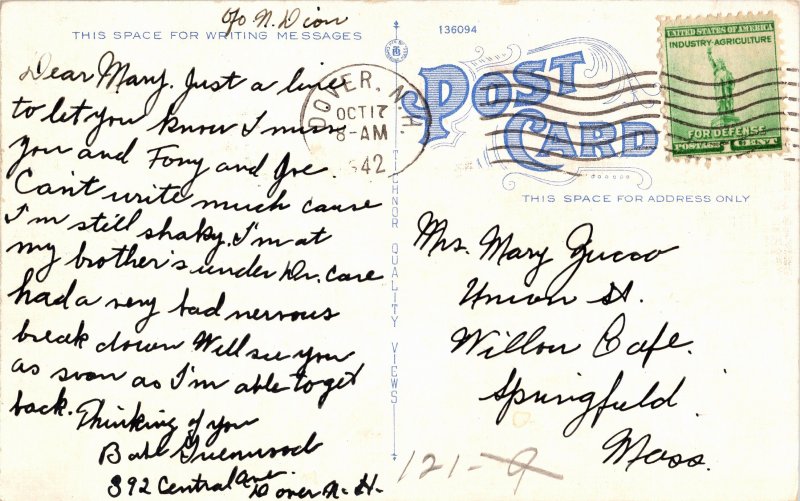 c/o N. Dion
THIS SPACE FOR WRITING MESSAGES
Dear Mary. Just a line
to let you know I miss
you and Tony and Joe.
Can't write much cause
I'm still shaky. I'm at
my brother's under Dr. care
had a very bad nervous
break down Will see you
as soon as I'm able to get
back. Thinking of you
Bob Greenwood
892 Central Ave. Dover N-H-
136094
DOVER, N.H.
OCT 17
8-AM
1942
POST
CARD
UNITED STATES OF AMERICA
INDUSTRY-AGRICULTURE
FOR DEFENSE
POSTAGE 1 CENT
TICHNOR QUALITY VIEWS
THIS SPACE FOR ADDRESS ONLY
Mrs. Mary Zucco
Union St.
Willow Cafe.
Springfield
Mass.
121-9